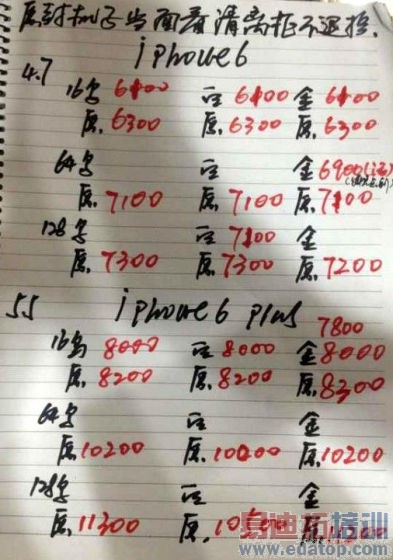 原封机子当面看清离柜不退换.
iphone6
4.7
16字 6100 白 6100 金 6100
原. 6300 原. 6300 原. 6300
64字 白 金 6900
原. 7100 原. 7100 原. 7100
128字 白 7100 金
原. 7300 原. 7300 原. 7200
5.5 iphone6 plus 7800
16 8000 白 8000 金 8000
原. 8200 原. 8200 原. 8300
64字 白 金
原. 10200 原. 10000 原. 10200
128字 白 金
原. 11300 原. 原.
易迪拓培训
www.edatop.com